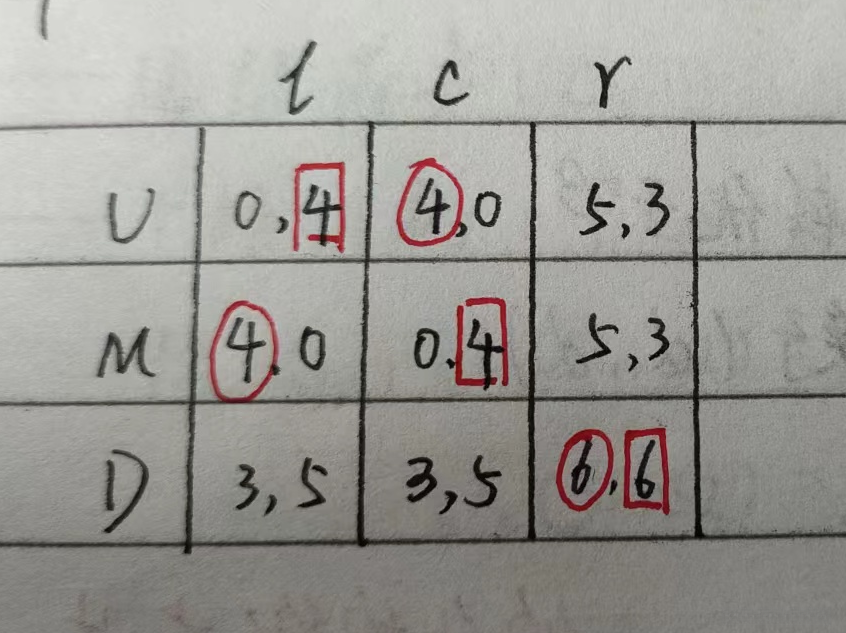 l c r
U 0,4 4,0 5,3
M 4.0 0.4 5,3
D 3,5 3,5 6,6